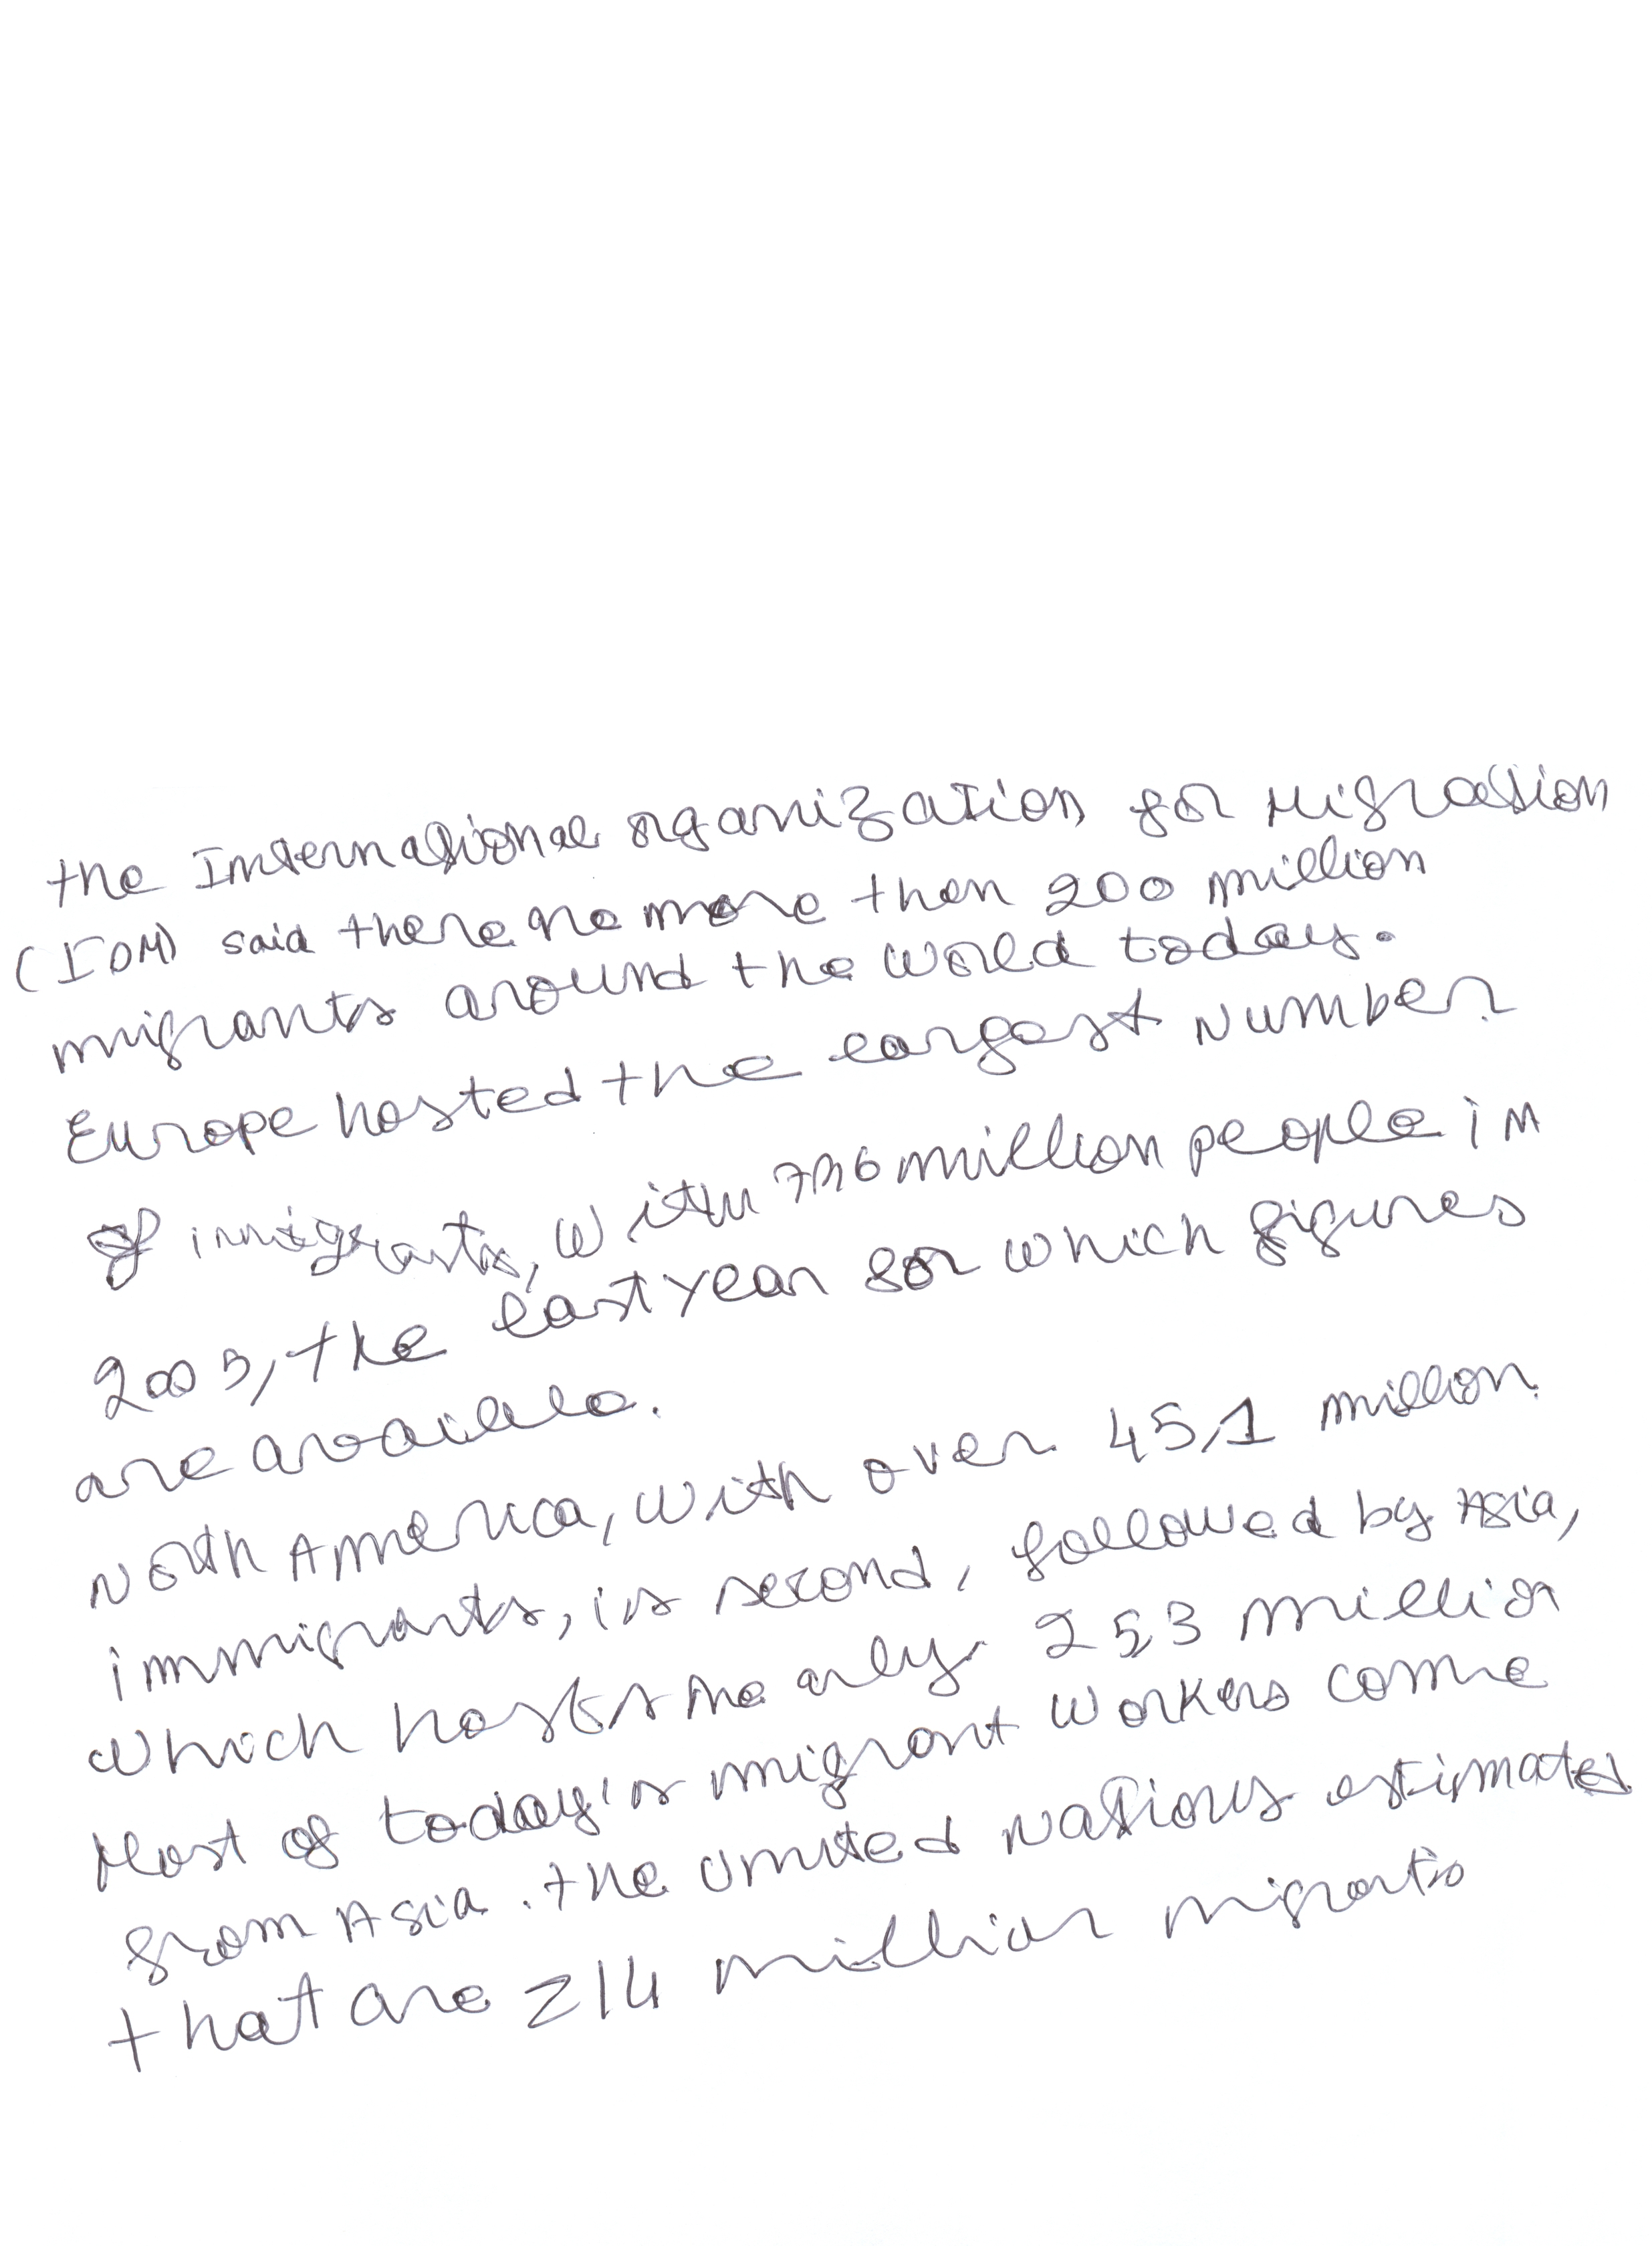 the International organization for Migration
(IOM) said there are more then 200 million
migrants around the world today.
Europe hosted the largest number
of immigrants, with million people in
2005, the last year for which figures
are available.
North America, with over 45,1 million
immigrants, is second, followed by Asia,
which hosts nearly 25,3 million
Most of today's migrant workers come
from Asia. the United Nations estimates
that are 214 million migrants